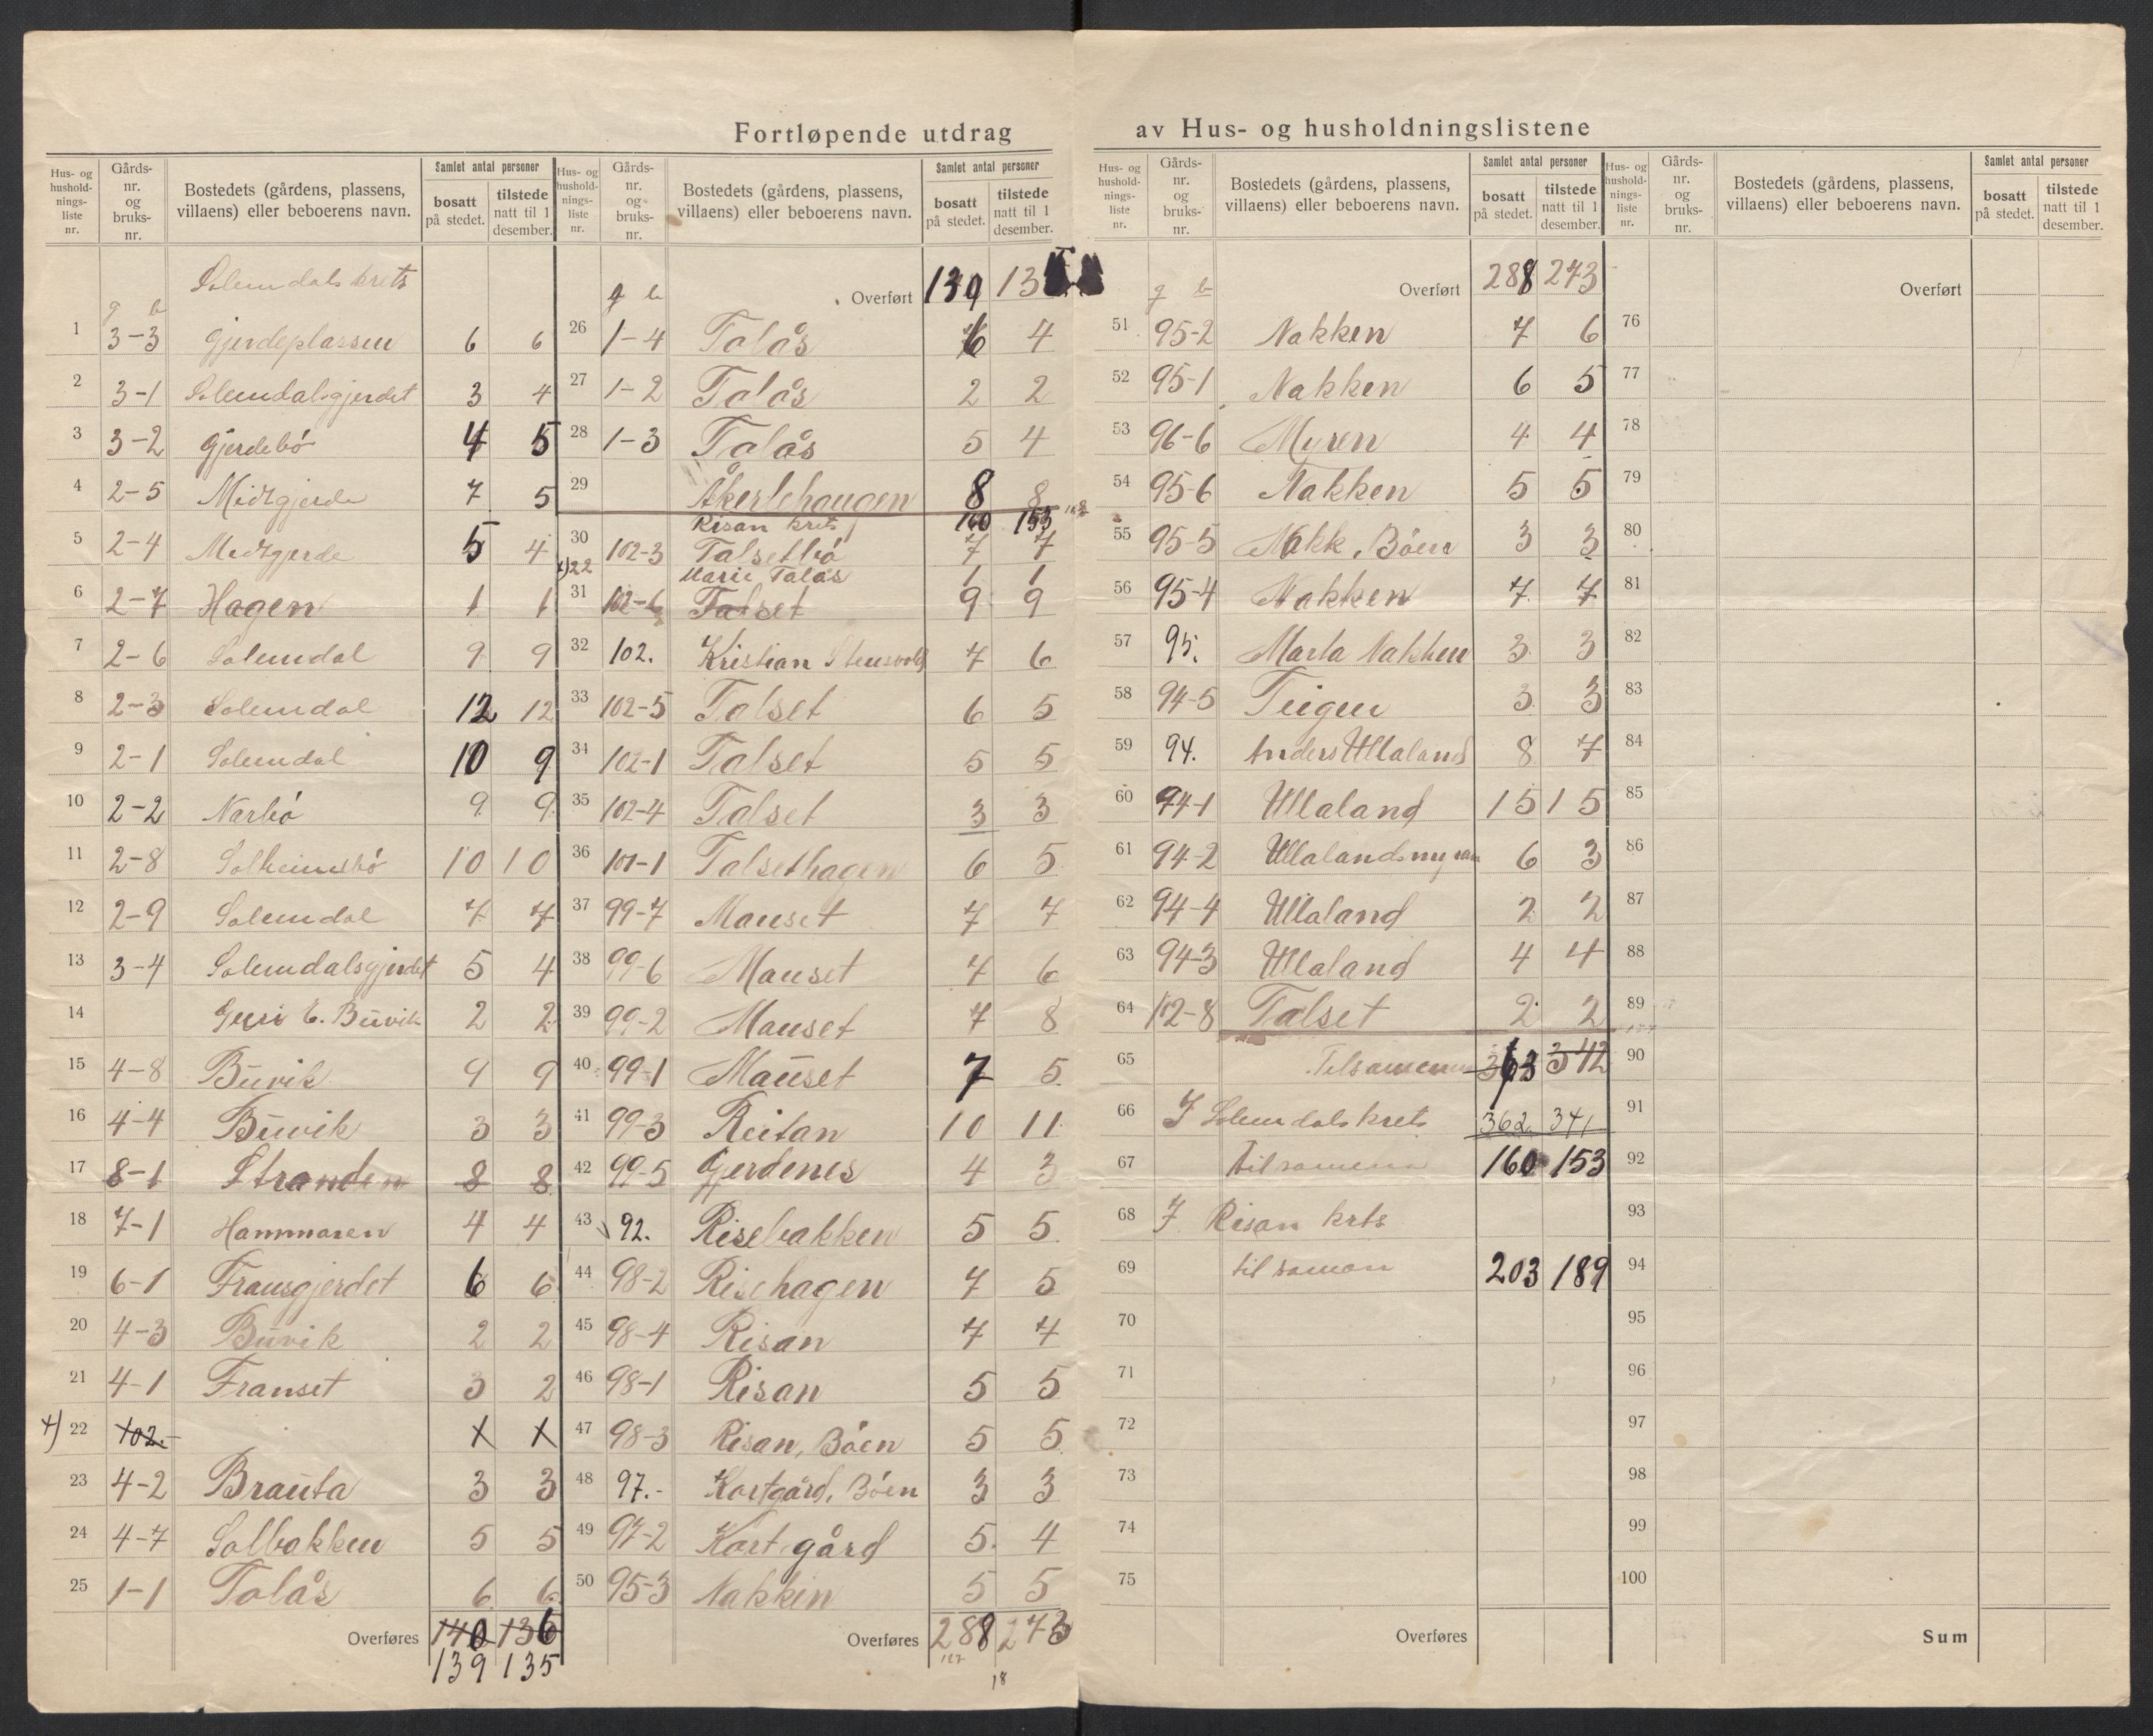 Fortløpende utdrag av Hus- og husholdningslistene
Hus- og hushold-nings-liste nr. Gårds-nr. og bruks-nr. Bostedets (gårdens, plassens, villaens) eller beboerens navn. Samlet antal personer bosatt på stedet. tilstede natt til 1 desember.
Solemdals krets
g b
1 3-3 Gjerdeplassen 6 6
2 3-1 Solemdalsgjerdet 3 4
3 3-2 Gjerdebö 4 5
4 2-5 Midtgjerde 7 5
5 2-4 Midtgjerde 5 4
6 2-7 Hagen 1 1
7 2-6 Solemdal 9 9
8 2-3 Solemdal 12 12
9 2-1 Solemdal 10 9
10 2-2 Narbö 9 9
11 2-8 Solheimsbö 10 10
12 2-9 Solemdal 7 7
13 3-4 Solemdalsgjerdet 5 4
14 Guri E. Buvik 2 2
15 4-8 Buvik 9 9
16 4-4 Buvik 3 3
17 8-1 Stranden 8 8
18 7-1 Hammaren 4 4
19 6-1 Fransgjerdet 6 6
20 4-3 Buvik 2 2
21 4-1 Franset 3 2
+) 22 102.- X X
23 4-2 Brauta 3 3
24 4-7 Solbakken 5 5
25 1-1 Tolås 6 6
Overføres 140 136
139 135
Hus- og hushold-nings-liste nr. Gårds-nr. og bruks-nr. Bostedets (gårdens, plassens, villaens) eller beboerens navn. Samlet antal personer bosatt på stedet. tilstede natt til 1 desember.
g b Overført 139 13
26 1-4 Tolås 6 4
27 1-2 Tolås 2 2
28 1-3 Tolås 5 4
29 Åkerlehaugen 8 8
Risan krets 160 153
30 102-3 Talsetbö 7 7
+) 22 Marie Talås 1 1
31 102-6 Talset 9 9
32 102. Kristian Stensvold 7 6
33 102-5 Talset 6 5
34 102-1 Talset 5 5
35 102-4 Talset 3 3
36 101-1 Talsethagen 6 5
37 99-7 Mauset 7 7
38 99-6 Mauset 7 6
39 99-2 Mauset 7 8
40 99-1 Mauset 7 5
41 99-3 Reitan 10 11
42 99-5 Gjerdenes 4 3
43 92. Risebakken 5 5
44 98-2 Risehagen 7 5
45 98-4 Risan 7 7
46 98-1 Risan 5 5
47 98-3 Risan, Böen 5 5
48 97.- Kortgård, Böen 3 3
49 97-2 Kortgård 5 4
50 95-3 Nakken 5 5
Overføres 288 273
127
18
Hus- og hushold-nings-liste nr. Gårds-nr. og bruks-nr. Bostedets (gårdens, plassens, villaens) eller beboerens navn. Samlet antal personer bosatt på stedet. tilstede natt til 1 desember.
g b Overført 288 273
51 95-2 Nakken 7 6
52 95-1 Nakken 6 5
53 96-6 Myren 4 4
54 95-6 Nakken 5 5
55 95-5 Nakk, Böen 3 3
56 95-4 Nakken 7 7
57 95. Marta Nakken 3 3
58 94-5 Teigen 3 3
59 94. Anders Ullaland 8 7
60 94-1 Ullaland 15 15
61 94-2 Ullaland 6 3
62 94-4 Ullaland 2 2
63 94-3 Ullaland 4 4
64 102-8 Talset 2 2
65 Tilsammen 363 342
66 I Solemdals krets 362 341
67 tilsamen 160 153
68 I Risan krets
69 til saman 203 189
70
71
72
73
74
75
Overføres
Hus- og hushold-nings-liste nr. Gårds-nr. og bruks-nr. Bostedets (gårdens, plassens, villaens) eller beboerens navn. Samlet antal personer bosatt på stedet. tilstede natt til 1 desember.
Overført
76
77
78
79
80
81
82
83
84
85
86
87
88
89
90
91
92
93
94
95
96
97
98
99
100
Sum